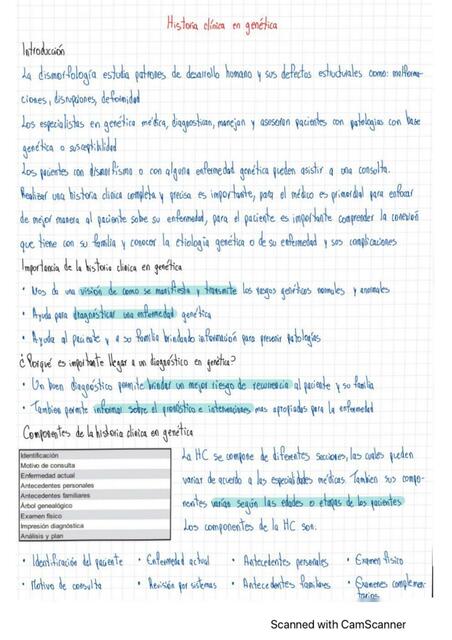 Historia clínica en genética
Introducción
La dismorfología estudia patrones de desarrollo humano y sus defectos estructurales como: malforma-
ciones, disrupciones, deformidad
Los especialistas en genética médica, diagnostican, manejan y asesoran pacientes con patologías con base
genética o susceptibilidad
Los pacientes con dismorfismo o con alguna enfermedad genética pueden asistir a una consulta.
Realizar una historia clínica completa y precisa es importante, para el médico es primordial para enfocar
de mejor manera al paciente sobe su enfermedad, para el paciente es importante comprender la conexión
que tiene con su familia y conocer la etiología genética o de su enfermedad y sus complicaciones
Importancia de la historia clínica en genética
• Nos da una visión de como se manifiesta y transmite los rasgos genéticos normales y anormales
• Ayuda para diagnósticar una enfermedad genética
• Ayuda al paciente y a su familia brindando información para prevenir patologías
¿Porqué es importante llegar a un diagnóstico en genética?
• Un buen diagnóstico permite brindar un mejor riesgo de recurrencia al paciente y su familia
• Tambien permite informar sobre el pronóstico e intervenciones mas apropiadas para la enfermedad
Componentes de la historia clínica en genética
Identificación
Motivo de consulta
Enfermedad actual
Antecedentes personales
Antecedentes familiares
Árbol genealógico
Examen físico
Impresión diagnóstica
Análisis y plan
La HC se compone de diferentes secciones, las cuales pueden
variar de acuerdo a las especialidades médicas. Tambien sus compo-
nentes varian según las edades o etapas de los pacientes
Los componentes de la HC son:
• Identificación del paciente • Enfermedad actual • Antecedentes personales • Examen físico
• Motivo de consulta • Revisión por sistemas • Antecedentes familiares • Exámenes complemen-
tarios
Scanned with CamScanner